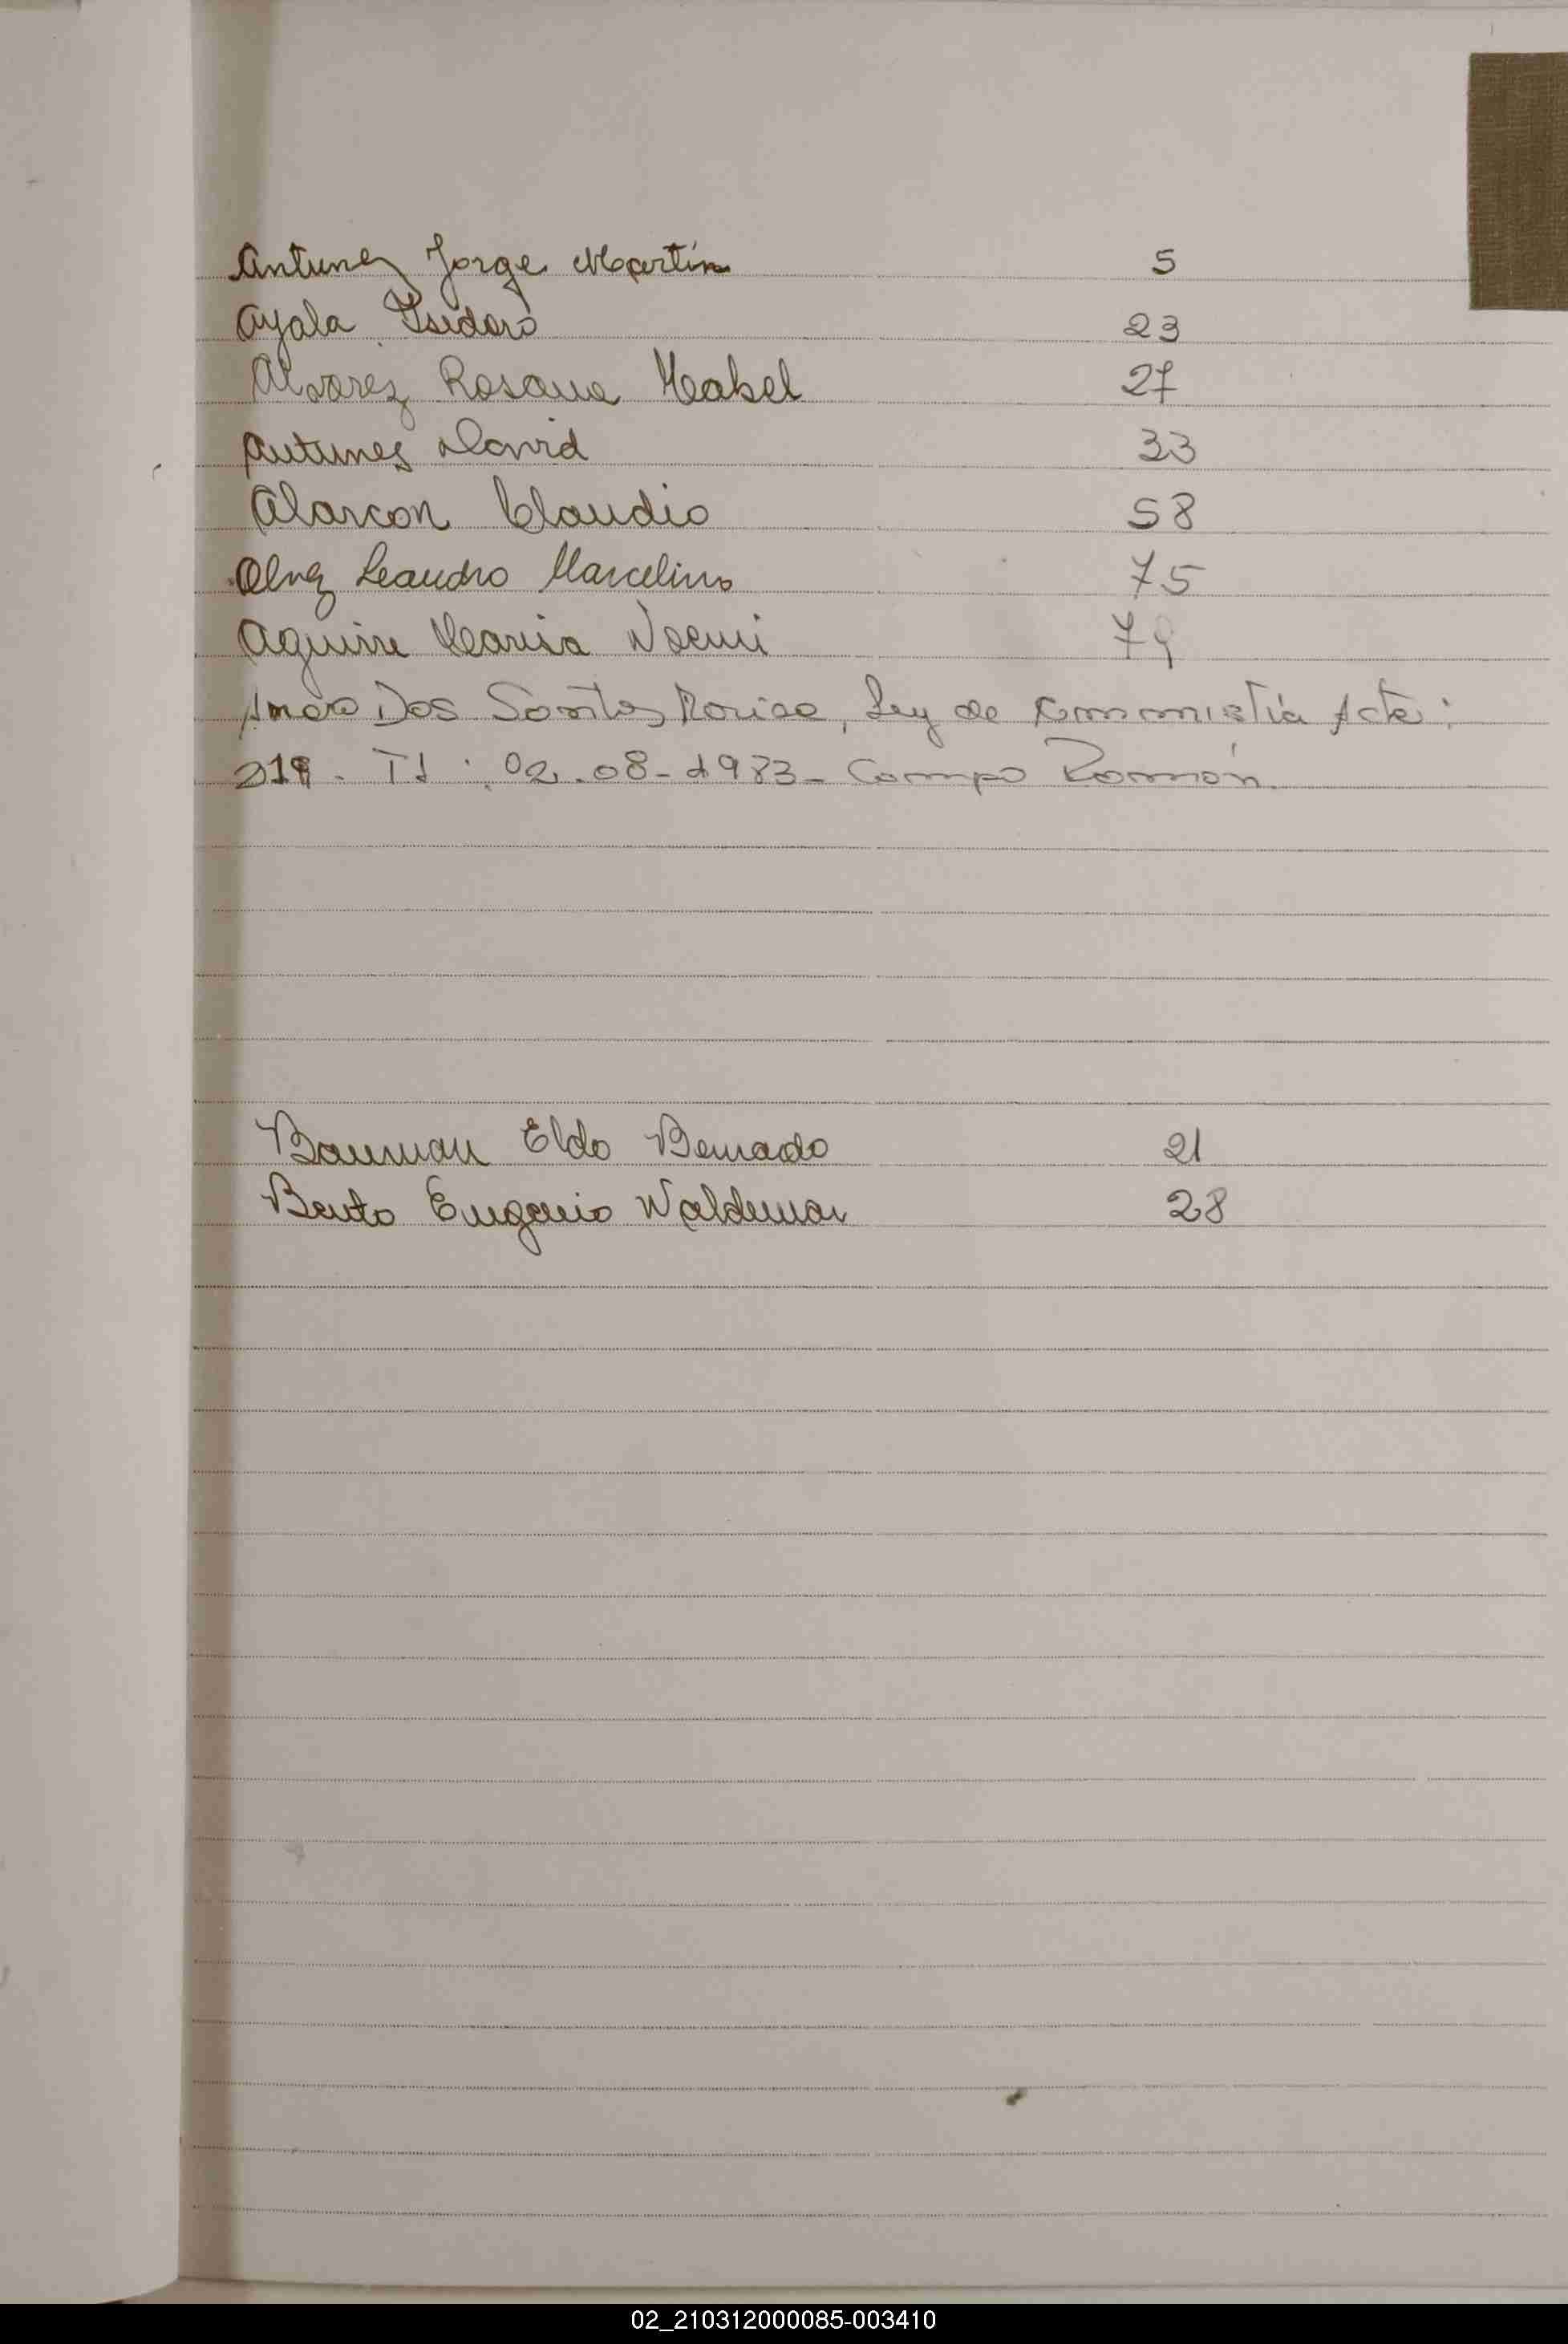 Antunez Jorge Martín 5
Ayala Isidoro 23
Alvarez Rosana Mabel 27
Antunes David 33
Alarcon Claudio 58
Leandro Marcelino 75
Aguirre Marisa Noemi 79
Dos Santos, Ley de Ammistía Acta:
219. T1: 02-08-1983- Campo Ramón.
Bauman Eldo Bernado 21
Bento Eugenio Waldemar 28
02_210312000085-003410